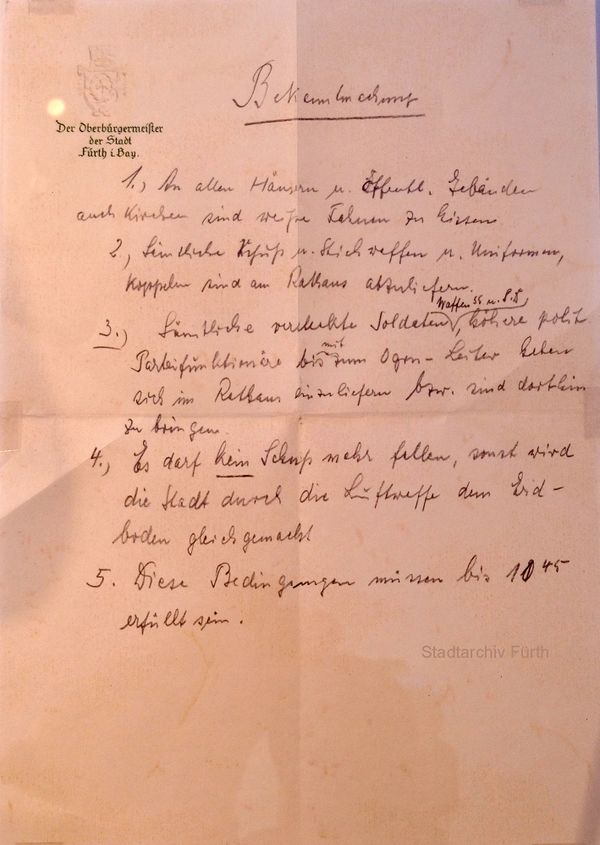 Der Oberbürgermeister
der Stadt
Fürth i. Bay.
Bekanntmachung
1., An allen Häusern u. Öffentl. Gebäuden
auch Kirchen sind weiße Fahnen zu hissen
2., Sämtliche Schuß u. Stichwaffen u. Uniformen,
Koppeln sind am Rathaus abzuliefern.
Waffen SS u. S.D.,
3., Sämtliche versteckte Soldaten, höhere polit.
mit
Parteifunktionäre bis zum Ogru-Leiter haben
sich im Rathaus einzuliefern bzw. sind dorthin
zu bringen.
4., Es darf kein Schuß mehr fallen, sonst wird
die Stadt durch die Luftwaffe dem Erd-
boden gleichgemacht
5. Diese Bedingungen müssen bis 10 45
erfüllt sein.
Stadtarchiv Fürth